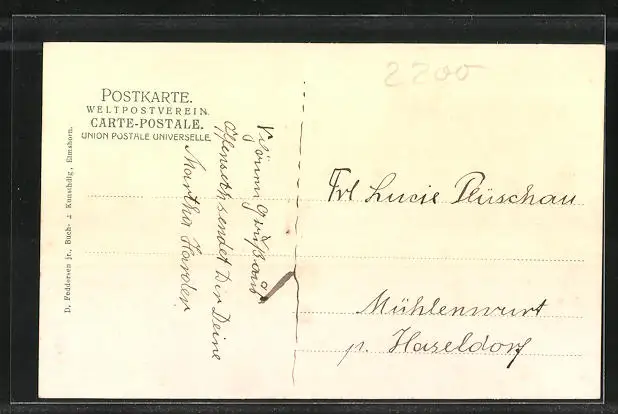 POSTKARTE.
WELTPOSTVEREIN.
CARTE-POSTALE.
UNION POSTALE UNIVERSELLE.
D. Feddersen jr., Buch- & Kunsthdlg., Elmshorn.
Gruß aus
sendet Dir Deine
Martha Harder.
2200
Frl Lucie Plüschau
Mühlenwurt
p. Haseldorf